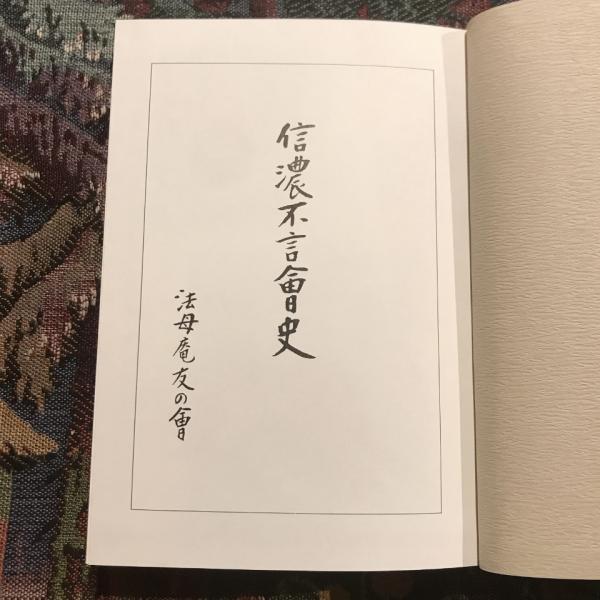 信濃不言會史
法母庵友の會